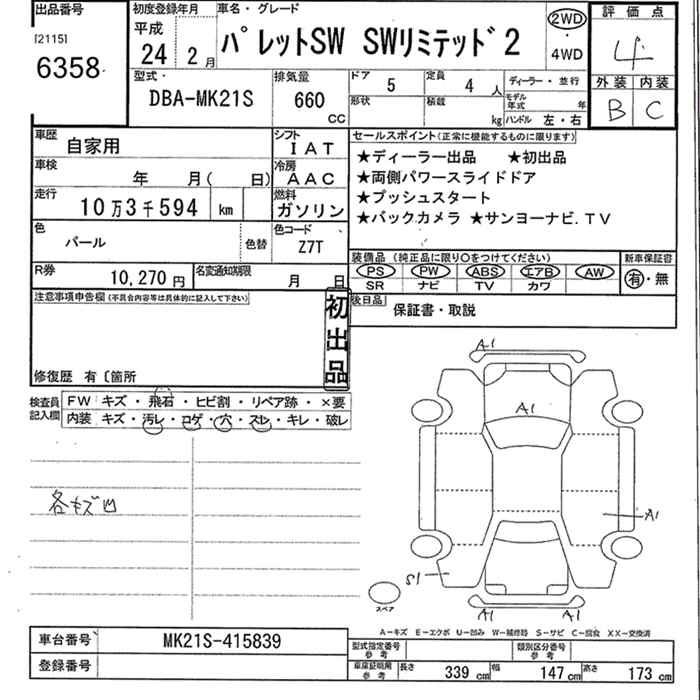 出品番号
[2115]
6358
初度登録年月
平成
24 2 月
車名・グレード
パレットSW SWリミテッド2
2WD
・
4WD
評価点
4
外装 内装
B C
型式・
DBA-MK21S
排気量
660
CC
ドア 5
定員 4 人
ディーラー・並行
形状
積載 kg
モデル年式 年
ハンドル 左・右
車歴 自家用
シフト IAT
車検 年 月( 日)
冷房 AAC
走行 10万3千594 km
燃料 ガソリン
色 パール
色替
色コード Z7T
R券 10,270 円
名変通知期限 月 日
セールスポイント(正常に機能するものに限ります)
★ディーラー出品 ★初出品
★両側パワースライドドア
★プッシュスタート
★バックカメラ ★サンヨーナビ.TV
装備品(純正品に限り○をつけてください)
PS PW ABS エアB AW
SR ナビ TV カワ
新車保証書
有・無
注意事項申告欄(不具合内容等は具体的に記入して下さい)
初出品
後日品 保証書・取説
修復歴 有〔箇所
検査員記入欄
FW キズ・飛石・ヒビ割・リペア跡・×要
内装 キズ・汚レ・コゲ・穴・スレ・キレ・破レ
各キズ凹
A1
A1
A1
S1
A1 A1
スペア
A-キズ E-エクボ U-凹み W-補修跡 S-サビ C-腐食 XX-交換済
車台番号 MK21S-415839
登録番号
型式指定番号 参考
類別区分番号 参考
車庫証明用 参考
長さ 339 cm 幅 147 cm 高さ 173 cm